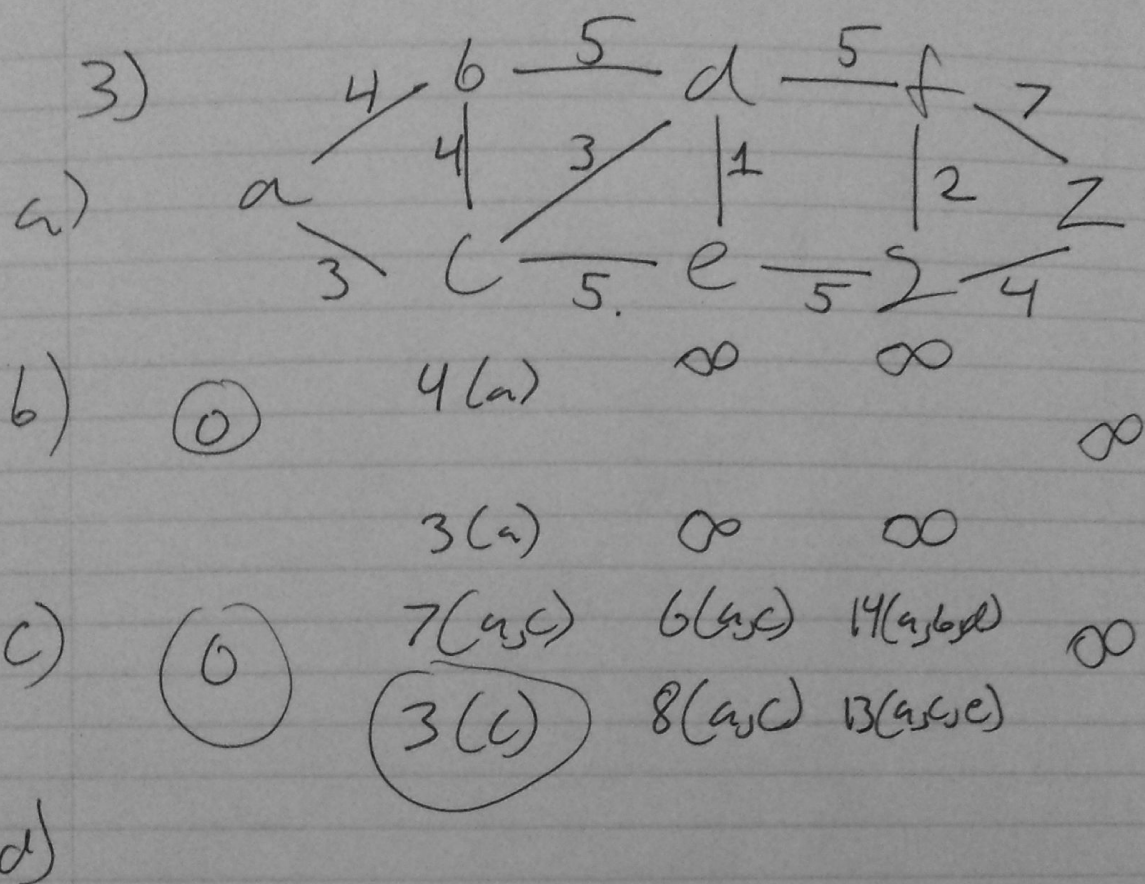 3) 4 b 5 d 5 f 7
a) a 4 3 1 2 z
3 c 5. e 5 g 4
b) 0 4(a) ∞ ∞ ∞
3(a) ∞ ∞
c) 0 7(a,c) 6(a,c) 14(a,b,d) ∞
3(c) 8(a,c) 13(a,c,e)
d)